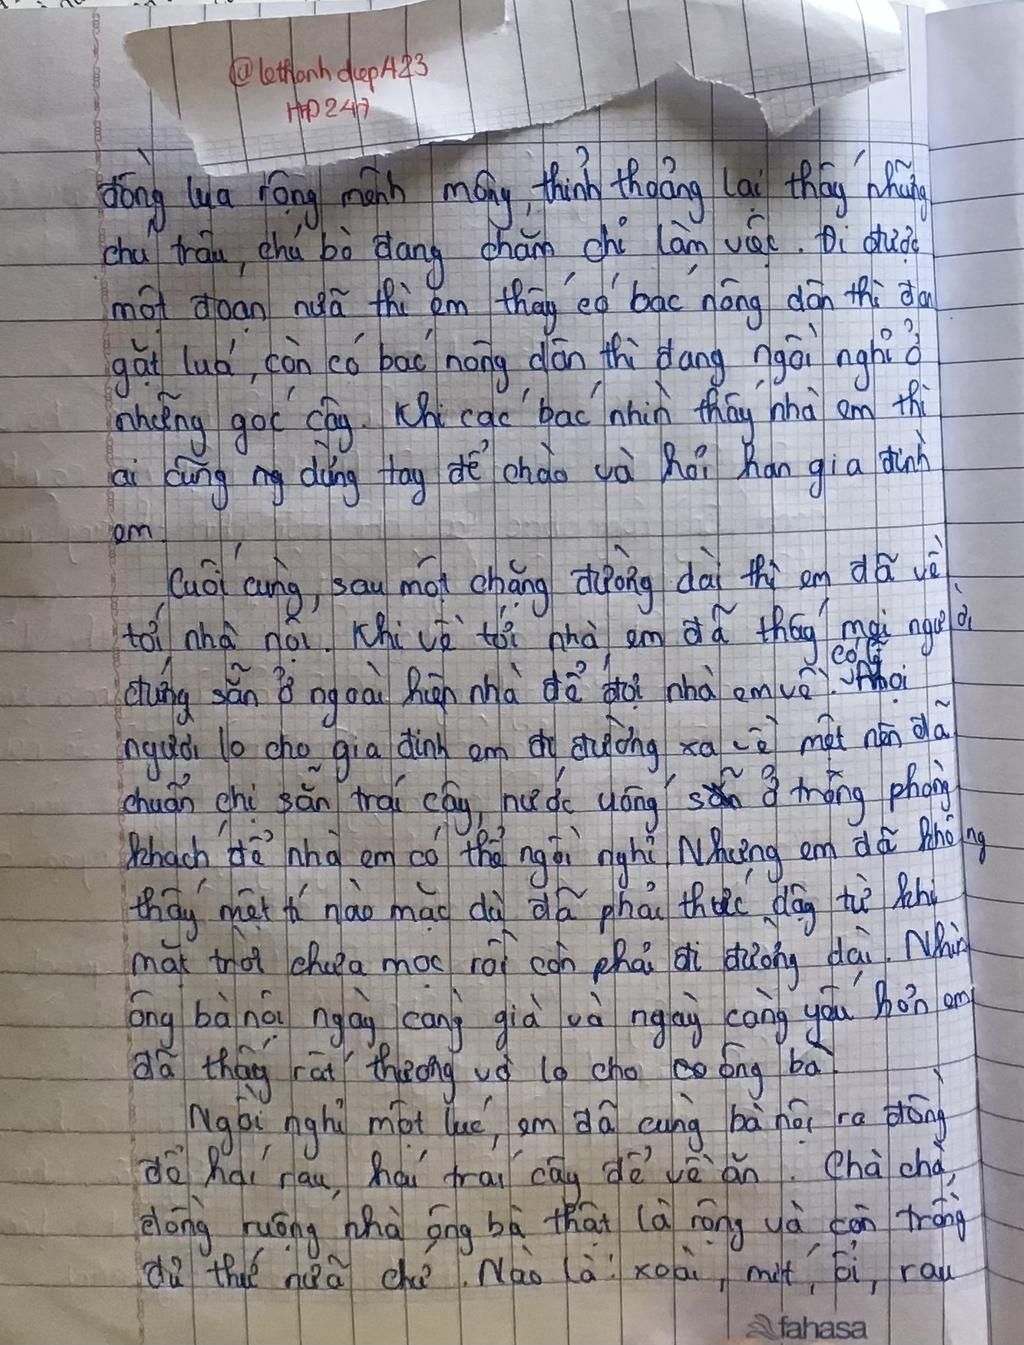 @lethanhdiepA23
HD247
đồng lúa rộng mênh mông, thỉnh thoảng lại thấy những
chú trâu, chú bò đang chăm chỉ làm việc. Đi được
một đoạn nữa thì em thấy có bác nông dân thì đan
gặt luá, còn có bác nông dân thì đang ngồi nghỉ ở
những gốc cây. Khi các bác nhìn thấy nhà em thì
ai cũng ng dừng tay để chào và hỏi han gia đình
em
Cuối cùng, sau một chặng đường dài thì em đã về
tới nhà nội. Khi về tới nhà, em đã thấy mọi người
đứng sẵn ở ngoài hiện nhà để đợi nhà em về. có lẽ Mọi
người lo cho gia đình em đi đường xa về mệt nên đã
chuẩn chị sẵn trái cây, nước uống sẵn ở trong phòng
khách để nhà em có thể ngồi nghỉ. Nhưng em đã không
thấy mệt tí nào mặc dù đã phải thức dậy từ khi
mặt trời chưa mọc rồi còn phải đi đường dài. Nhìn
ông bà nội ngày càng già và ngày càng yếu hơn em
đã thấy rất thương và lo cho co ông bà.
Ngồi nghỉ một lúc, em đã cùng bà nội ra đồng
để hái rau, hái trái cây để về ăn. Chà chà,
đồng ruộng nhà ông bà thật là rộng và còn trồng
đủ thứ nữa chứ. Nào là: xoài, mít, ổi, rau
fahasa